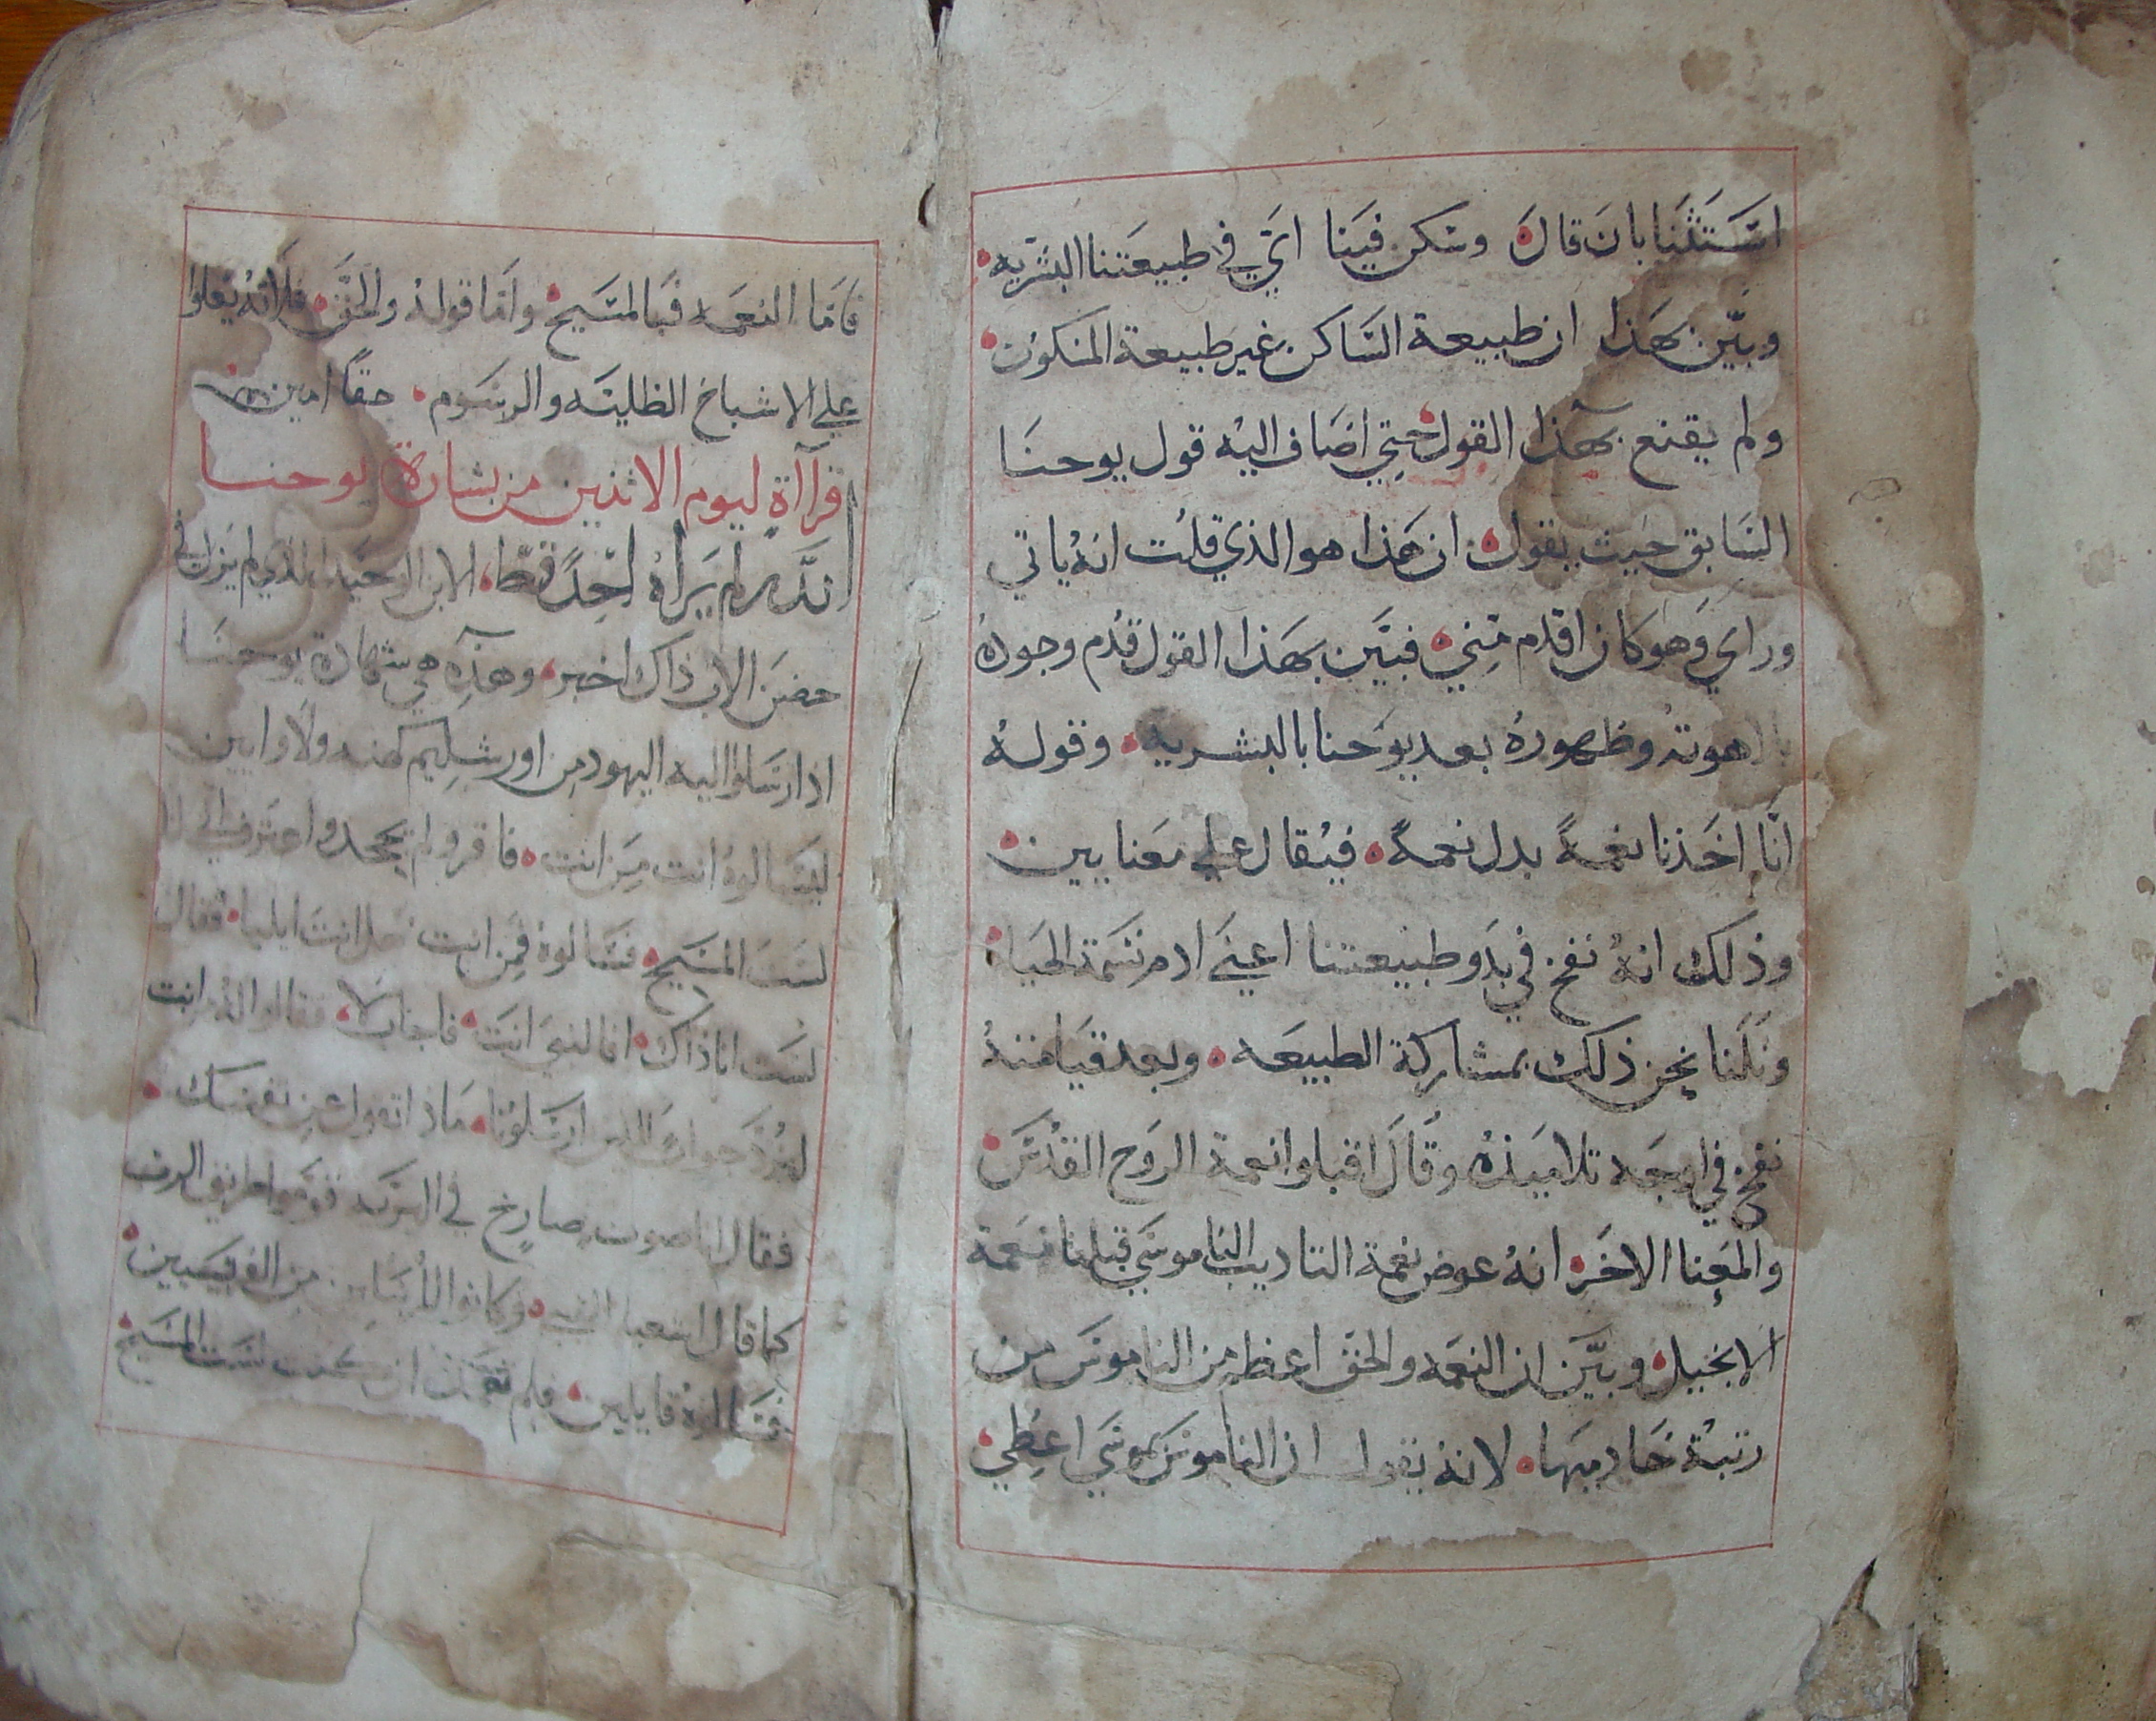 استثنا بان قال وسكن فينا اي في طبيعتنا البشريه
وبين بهذا ان طبيعة الساكن غير طبيعة المسكون
ولم يقنع بهذا القول حتي اضاف اليه قول يوحنا
السابق حيث يقول ان هذا هو الذي قلت انه ياتي
وراي وهو كان اقدم مني فبين بهذا القول قدم وجوده
وظهوره بعد يوحنا بالبشريه وقوله
انا اخذنا نعمة بدل نعمة فيقال علي معنايين
وذلك انه نفخ في بدو طبيعتنا اعني ادم نسمة الحياة
ونلنا نحن ذلك بمشاركة الطبيعه وبعد قيامته
نفخ في اوجه تلاميذه وقال اقبلوا نعمة الروح القدس
والمعنا الاخر انه عوض نعمة التاديب الناموسي قبلنا نعمة
الانجيل وبين ان النعمه والحق اعظم من الناموس من
رتبة خادميها لانه يقول ان الناموس بموسي اعطي
فاما النعمه فبالمسيح واما قوله والحق فلانه يعلوا
علي الاشباح الظليه والرسوم حقا امين
قرآاة ليوم الاثنين من بشارة يوحنا
الله لم يراه احد قط الابن الوحيد الذي لم يزل في
حضن الاب ذاك اخبر وهذه هي شهادة يوحنا
اذ ارسلوا اليه اليهود من اورشليم كهنه ولاوايين
ليسالوه انت من انت فاقر ولم يجحد واعترف اني انا
لست المسيح فسالوه فمن انت هل انت ايليا فقال
لست انا ذاك النبي انت فاجاب لا فقالوا له من انت
لنرد جوابا للذين ارسلونا ماذا تقول عن نفسك
فقال انا صوت صارخ في البريه قوموا طريق الرب
كما قال اشعيا النبي وكانوا المرسلين من الفريسيين
فسالوه قايلين فلم تعمد ان كنت لست المسيح